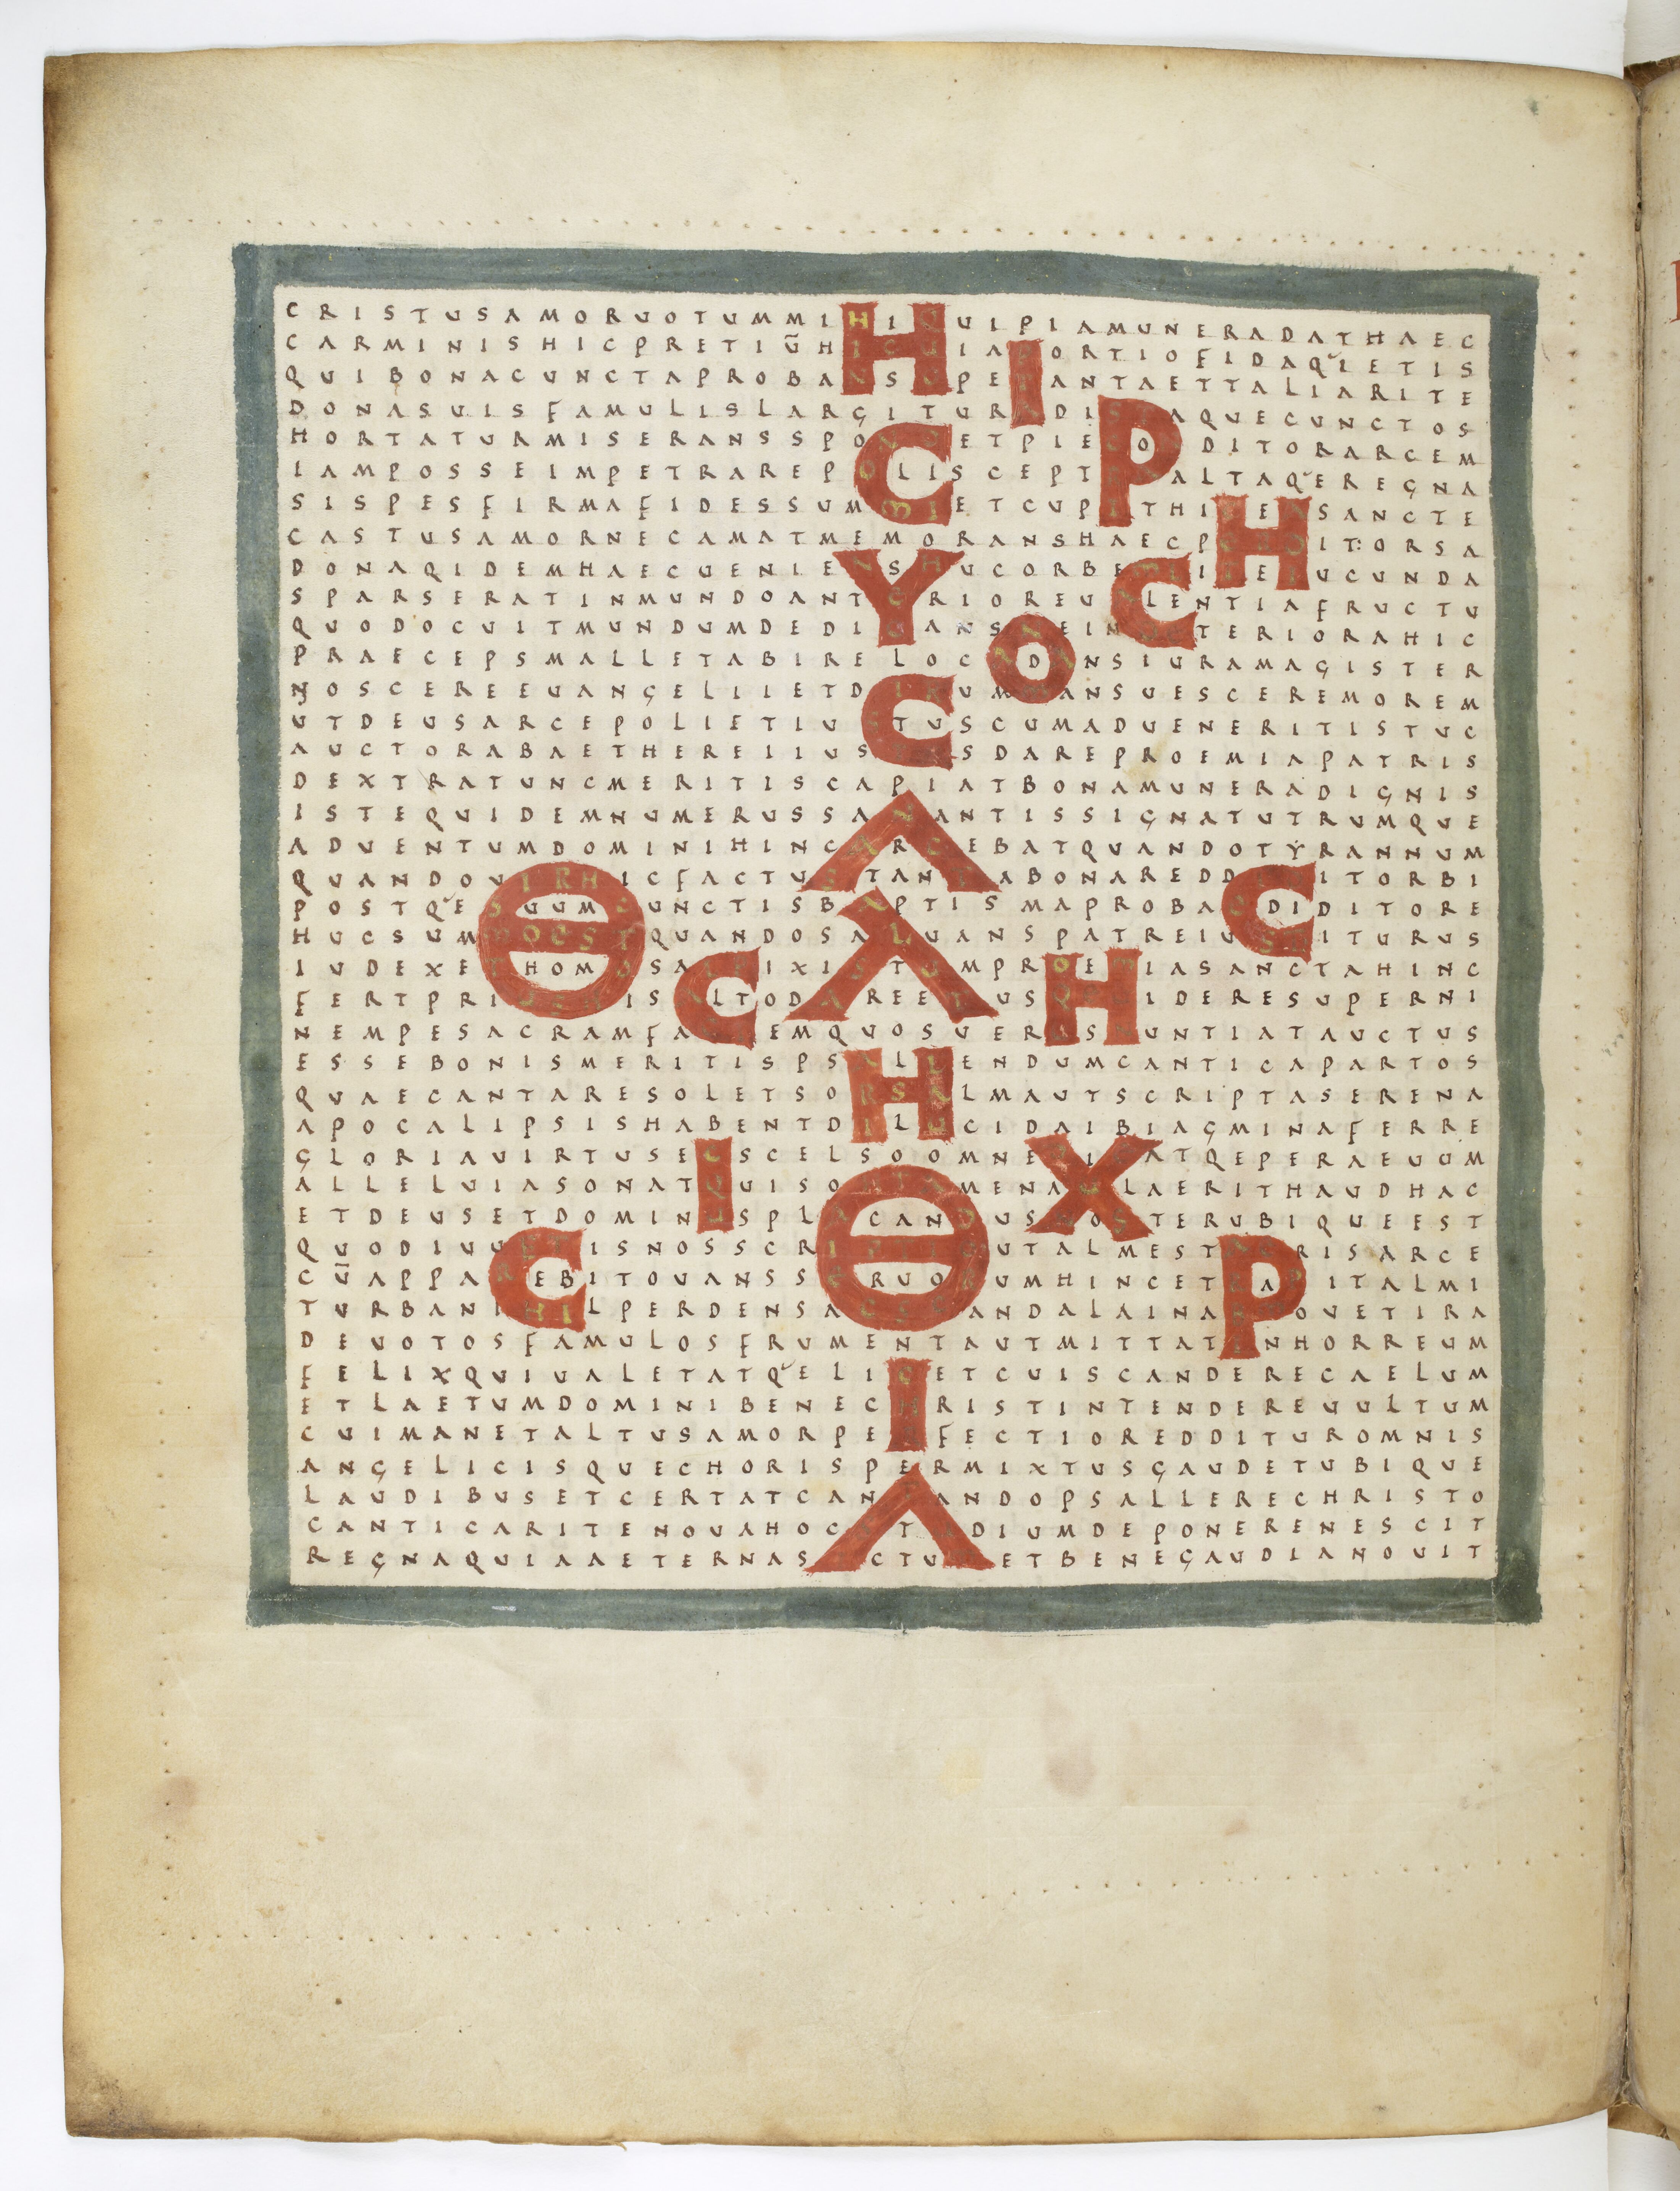 CRISTUSAMORUOTUMMIHIQUIPIAMUNERADATHAEC
CARMINISHICPRETIŪHICUIAPORTIOFIDAQIETIS
QUIBONACUNCTAPROBANSUPETANTAETTALIARITE
DONASUISFAMULISLARGITURADISTAQUECUNCTOS
HORTATURMISERANSSPONDETPIECONDITORARCEM
IAMPOSSEIMPETRAREPOLISCEPTRAALTAQEREGNA
SISPESFIRMAFIDESSUMMIETCUPITHICENSANCTE
CASTUSAMORNECAMATMEMORANSHAECPONDITORSA
DONAQIDEMHAECUENIENSHUCORBEMITEIUCUNDA
SPARSERATINMUNDOANTERIOREUALENTIAFRUCTU
QUODOCUITMUNDUMDEDIGANSNEINDETERIORAHIC
PRAECEPSMALLETABIRELOCADANSIURAMAGISTER
NOSCEREEUANGELIIETDIRUMMANSUESCEREMOREM
UTDEUSARCEPOLIETIUSTUSCUMADUENERITISTUC
AUCTORABAETHEREIIUSSORSDAREPROEMIAPATRIS
DEXTRATUNCMERITISCAPIATBONAMUNERADIGNIS
ISTEQUIDEMNUMERUSSANANTISSIGNATUTRUMQUE
ADUENTUMDOMINIHINCARCEBATQUANDOTYRANNUM
QUANDOUIRHICFACTUSTANTABONAREDDIDITORBI
POSTQESUUMCUNCTISBAPTISMAPROBADIDITORE
HUCSUMMOESTQUANDOSALUANSPATREIUSITURUS
IUDEXETHOMOSATFIXISTUMPROEMIASANCTAHINC
FERTPRIDEMISALTODAREETUSQEUIDERESUPERNI
NEMPESACRAMFACIEMQUOSUERUSNUNTIATAUCTUS
ESSEBONISMERITISPSALLENDUMCANTICAPARTOS
QUAECANTARESOLETSORSALMAUTSCRIPTASERENA
APOCALIPSISHABENTDILUCIDAIBIAGMINAFERRE
GLORIAUIRTUSECSCELSOOMNEDICATQEPERAEUUM
ALLELUIASONATQUISONTAMENAULAERITHAUDHAC
ETDEUSETDOMINUSPLACANDUSNOSTERUBIQUEEST
QUODIUUETISNOSSCRIPTIOUTALMESTACRISARCE
CŪAPPAREBITOUANSSERUORUMHINCETCAPITALMI
TURBANIHILPERDENSACSCANDALAINAEMOUETIRA
DEUOTOSFAMULOSFRUMENTAUTMITTATINHORREUM
FELIXQUIUALETATQELICETCUISCANDERECAELUM
ETLAETUMDOMINIBENECHRISTINTENDEREUULTUM
CUIMANETALTUSAMORPERFECTIOREDDITUROMNIS
ANGELICISQUECHORISPERMIXTUSGAUDETUBIQUE
LAUDIBUSETCERTATCANTANDOPSALLERECHRISTO
CANTICARITENOUAHOCSTADIUMDEPONERENESCIT
REGNAQUIAAETERNASANCTUMETBENEGAUDIANOUIT